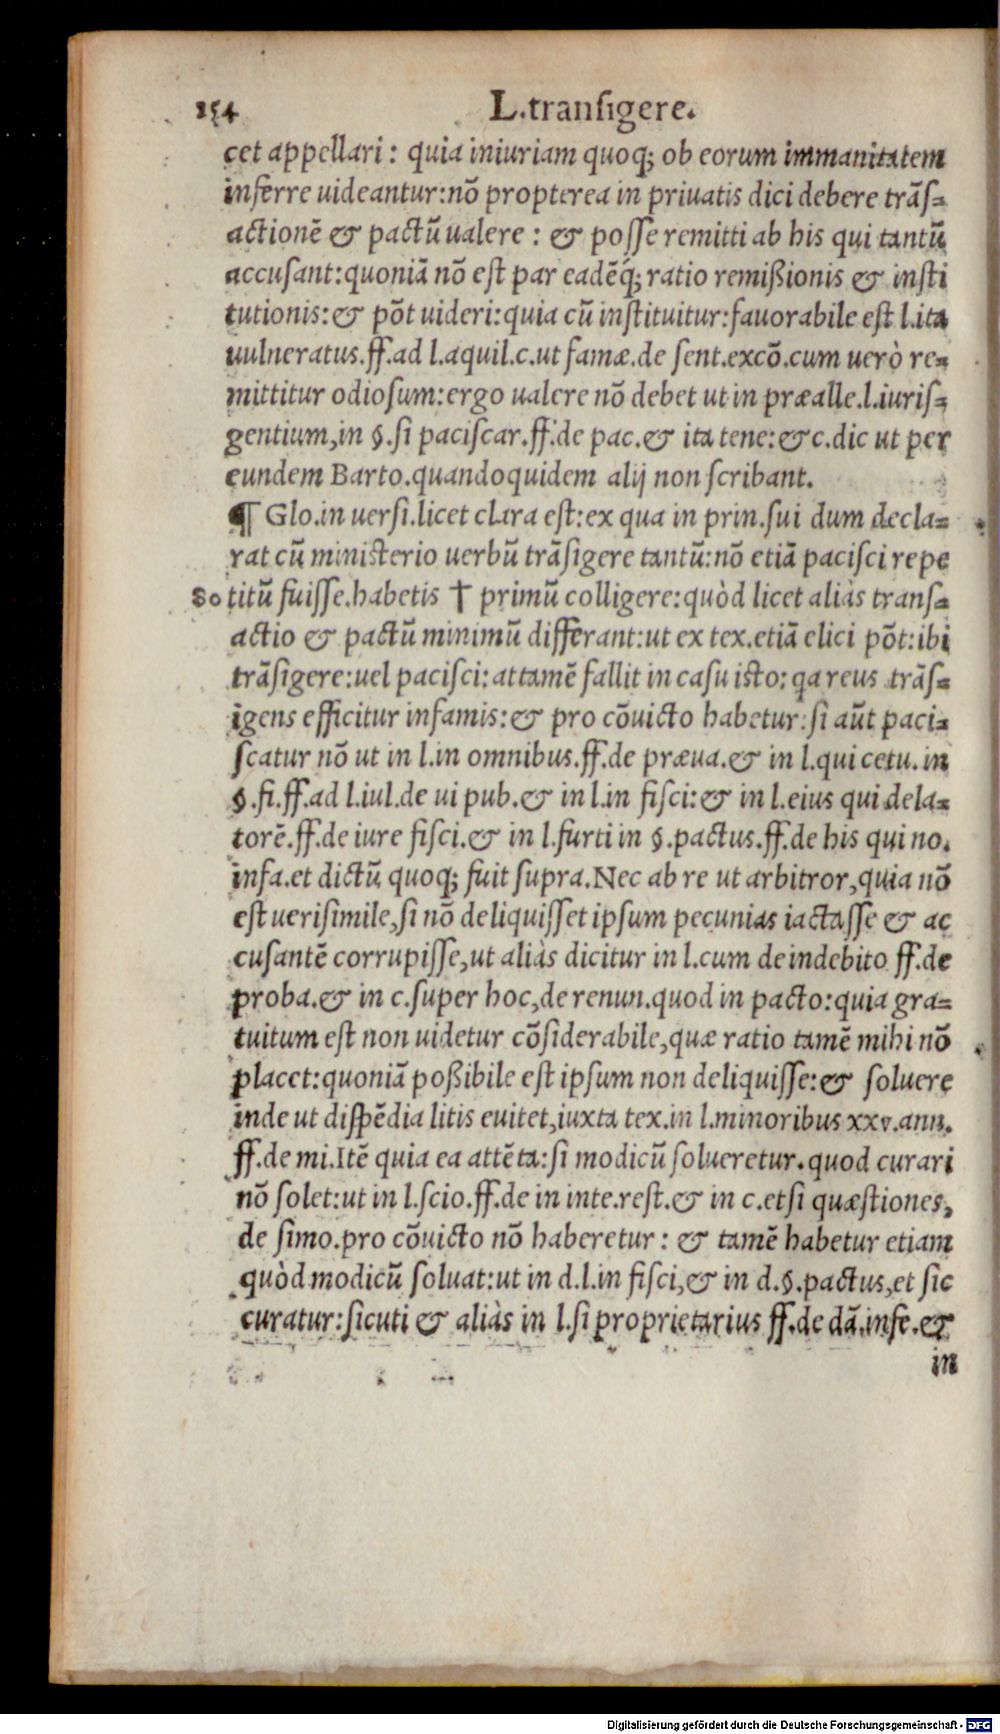 154 L.transigere.
cet appellari: quia iniuriam quoq; ob eorum immanitatem
inferre uideantur:nō propterea in priuatis dici debere trāſ-
actionē & pactū ualere: & poſſe remitti ab his qui tantū
accuſant:quoniā nō eſt par eadēq́; ratio remißionis & inſti
tutionis:& pōt uideri:quia cū inſtituitur:fauorabile eſt l.ita
uulneratus.ff.ad l.aquil.c.ut famæ.de ſent.excō.cum uerò re-
mittitur odioſum:ergo ualere nō debet ut in præalle.l.iuriſ-
gentium,in §.ſi paciſcar.ff.de pac.& ita tene:& c.dic ut per
eundem Barto.quandoquidem alij non ſcribant.
¶ Glo.in uerſi.licet clara eſt:ex qua in prin.ſui dum decla-
rat cū miniſterio uerbū trāſigere tantū:nō etiā paciſci repe
80 titū fuiſſe.habetis † primū colligere:quòd licet aliàs tranſ-
actio & pactū minimū differant:ut ex tex.etiā elici pōt:ibi
trāſigere:uel paciſci:attamē fallit in caſu iſto:qa reus trāſ-
igens efficitur infamis:& pro cōuicto habetur:ſi aūt paci-
ſcatur nō ut in l.in omnibus.ff.de præua.& in l.qui cetu.in
§.fi.ff.ad l.iul.de ui pub.& in l.in fiſci:& in l.eius qui dela-
torē.ff.de iure fiſci.& in l.furti in §.pactus.ff.de his qui no.
infa.et dictū quoq; fuit ſupra.Nec ab re ut arbitror,quia nō
eſt ueriſimile,ſi nō deliquiſſet ipſum pecunias iactaſſe & ac
cuſantē corrupiſſe,ut aliàs dicitur in l.cum de indebito ff.de
proba.& in c.ſuper hoc,de renun.quod in pacto:quia gra-
tuitum eſt non uidetur cōſiderabile,quæ ratio tamē mihi nō
placet:quoniā poßibile eſt ipſum non deliquiſſe:& ſoluere
inde ut diſpēdia litis euitet,iuxta tex.in l.minoribus xxv.ann.
ff.de mi.Itē quia ea attēta:ſi modicū ſolueretur.quod curari
nō ſolet:ut in l.ſcio.ff.de in inte.reſt.& in c.etſi quæſtiones,
de ſimo.pro cōuicto nō haberetur: & tamē habetur etiam
quòd modicū ſoluat:ut in d.l.in fiſci,& in d.§.pactus,et ſic
curatur:ſicuti & aliàs in l.ſi proprietarius ff.de dā.infe.&
in
Digitalisierung gefördert durch die Deutsche Forschungsgemeinschaft - DFG